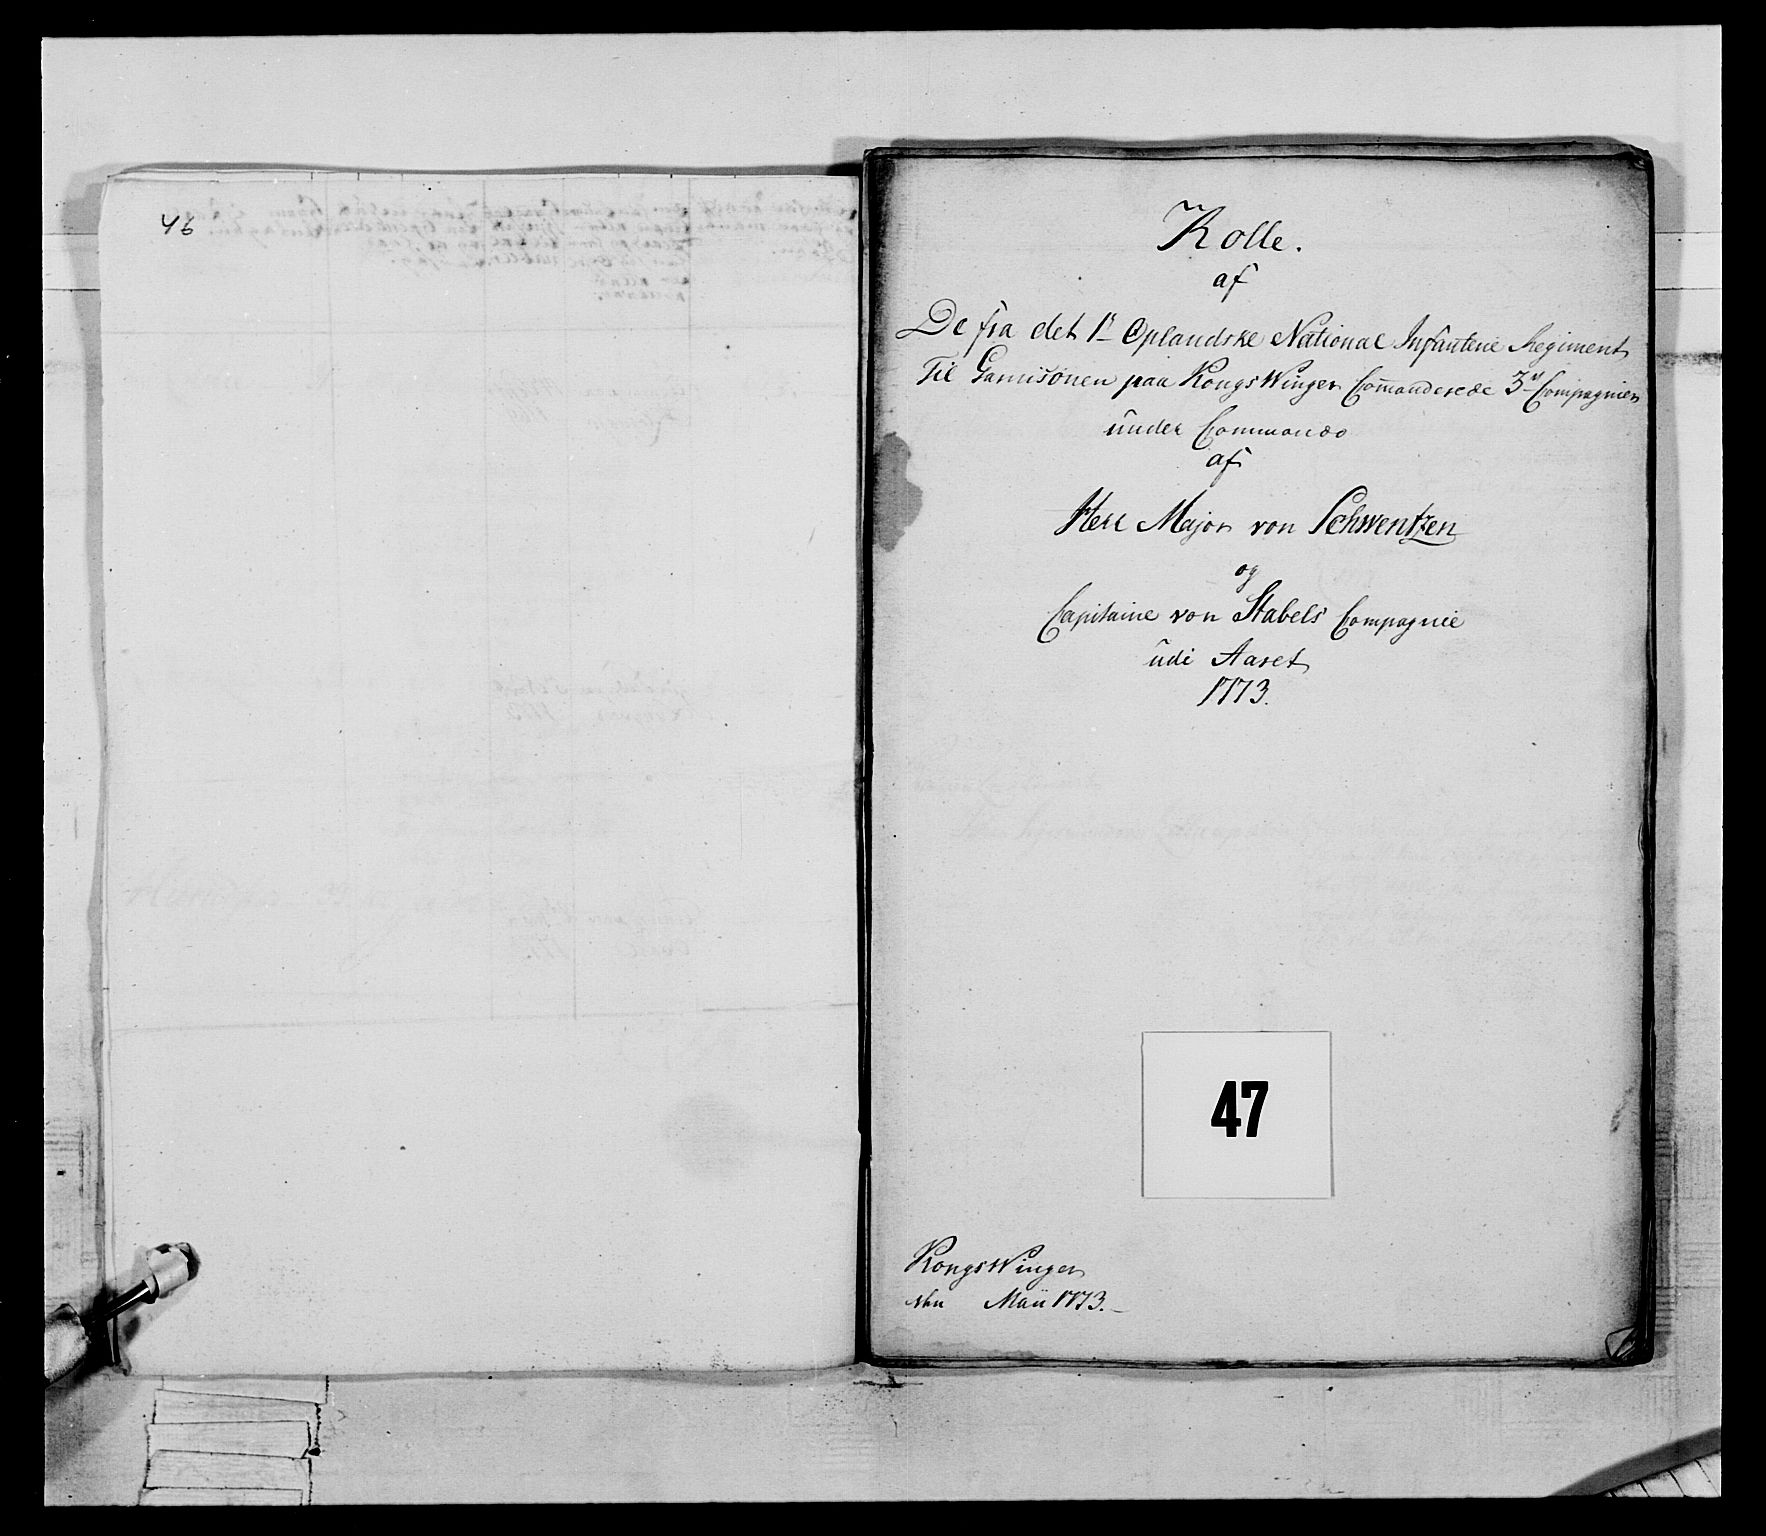 46
Rolle.
af
De fra det 1ˢ Oplandske National Infanterie Regiment
Til Garnisonen paa KongsWinger Com̄anderede 3ᵈ Compagnier
ünder Commando
af
Herr Major von Schwentzen
og
Capitaine von Stabels Compagnie
üdi Aaret
1773.
47
KongsWinger
den Maii 1773.